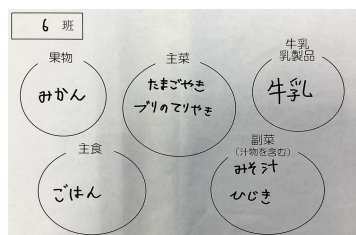 6 班
果物
みかん
主菜
たまごやき
ブリのてりやき
牛乳
乳製品
牛乳
主食
ごはん
副菜
(汁物を含む)
みそ汁
ひじき